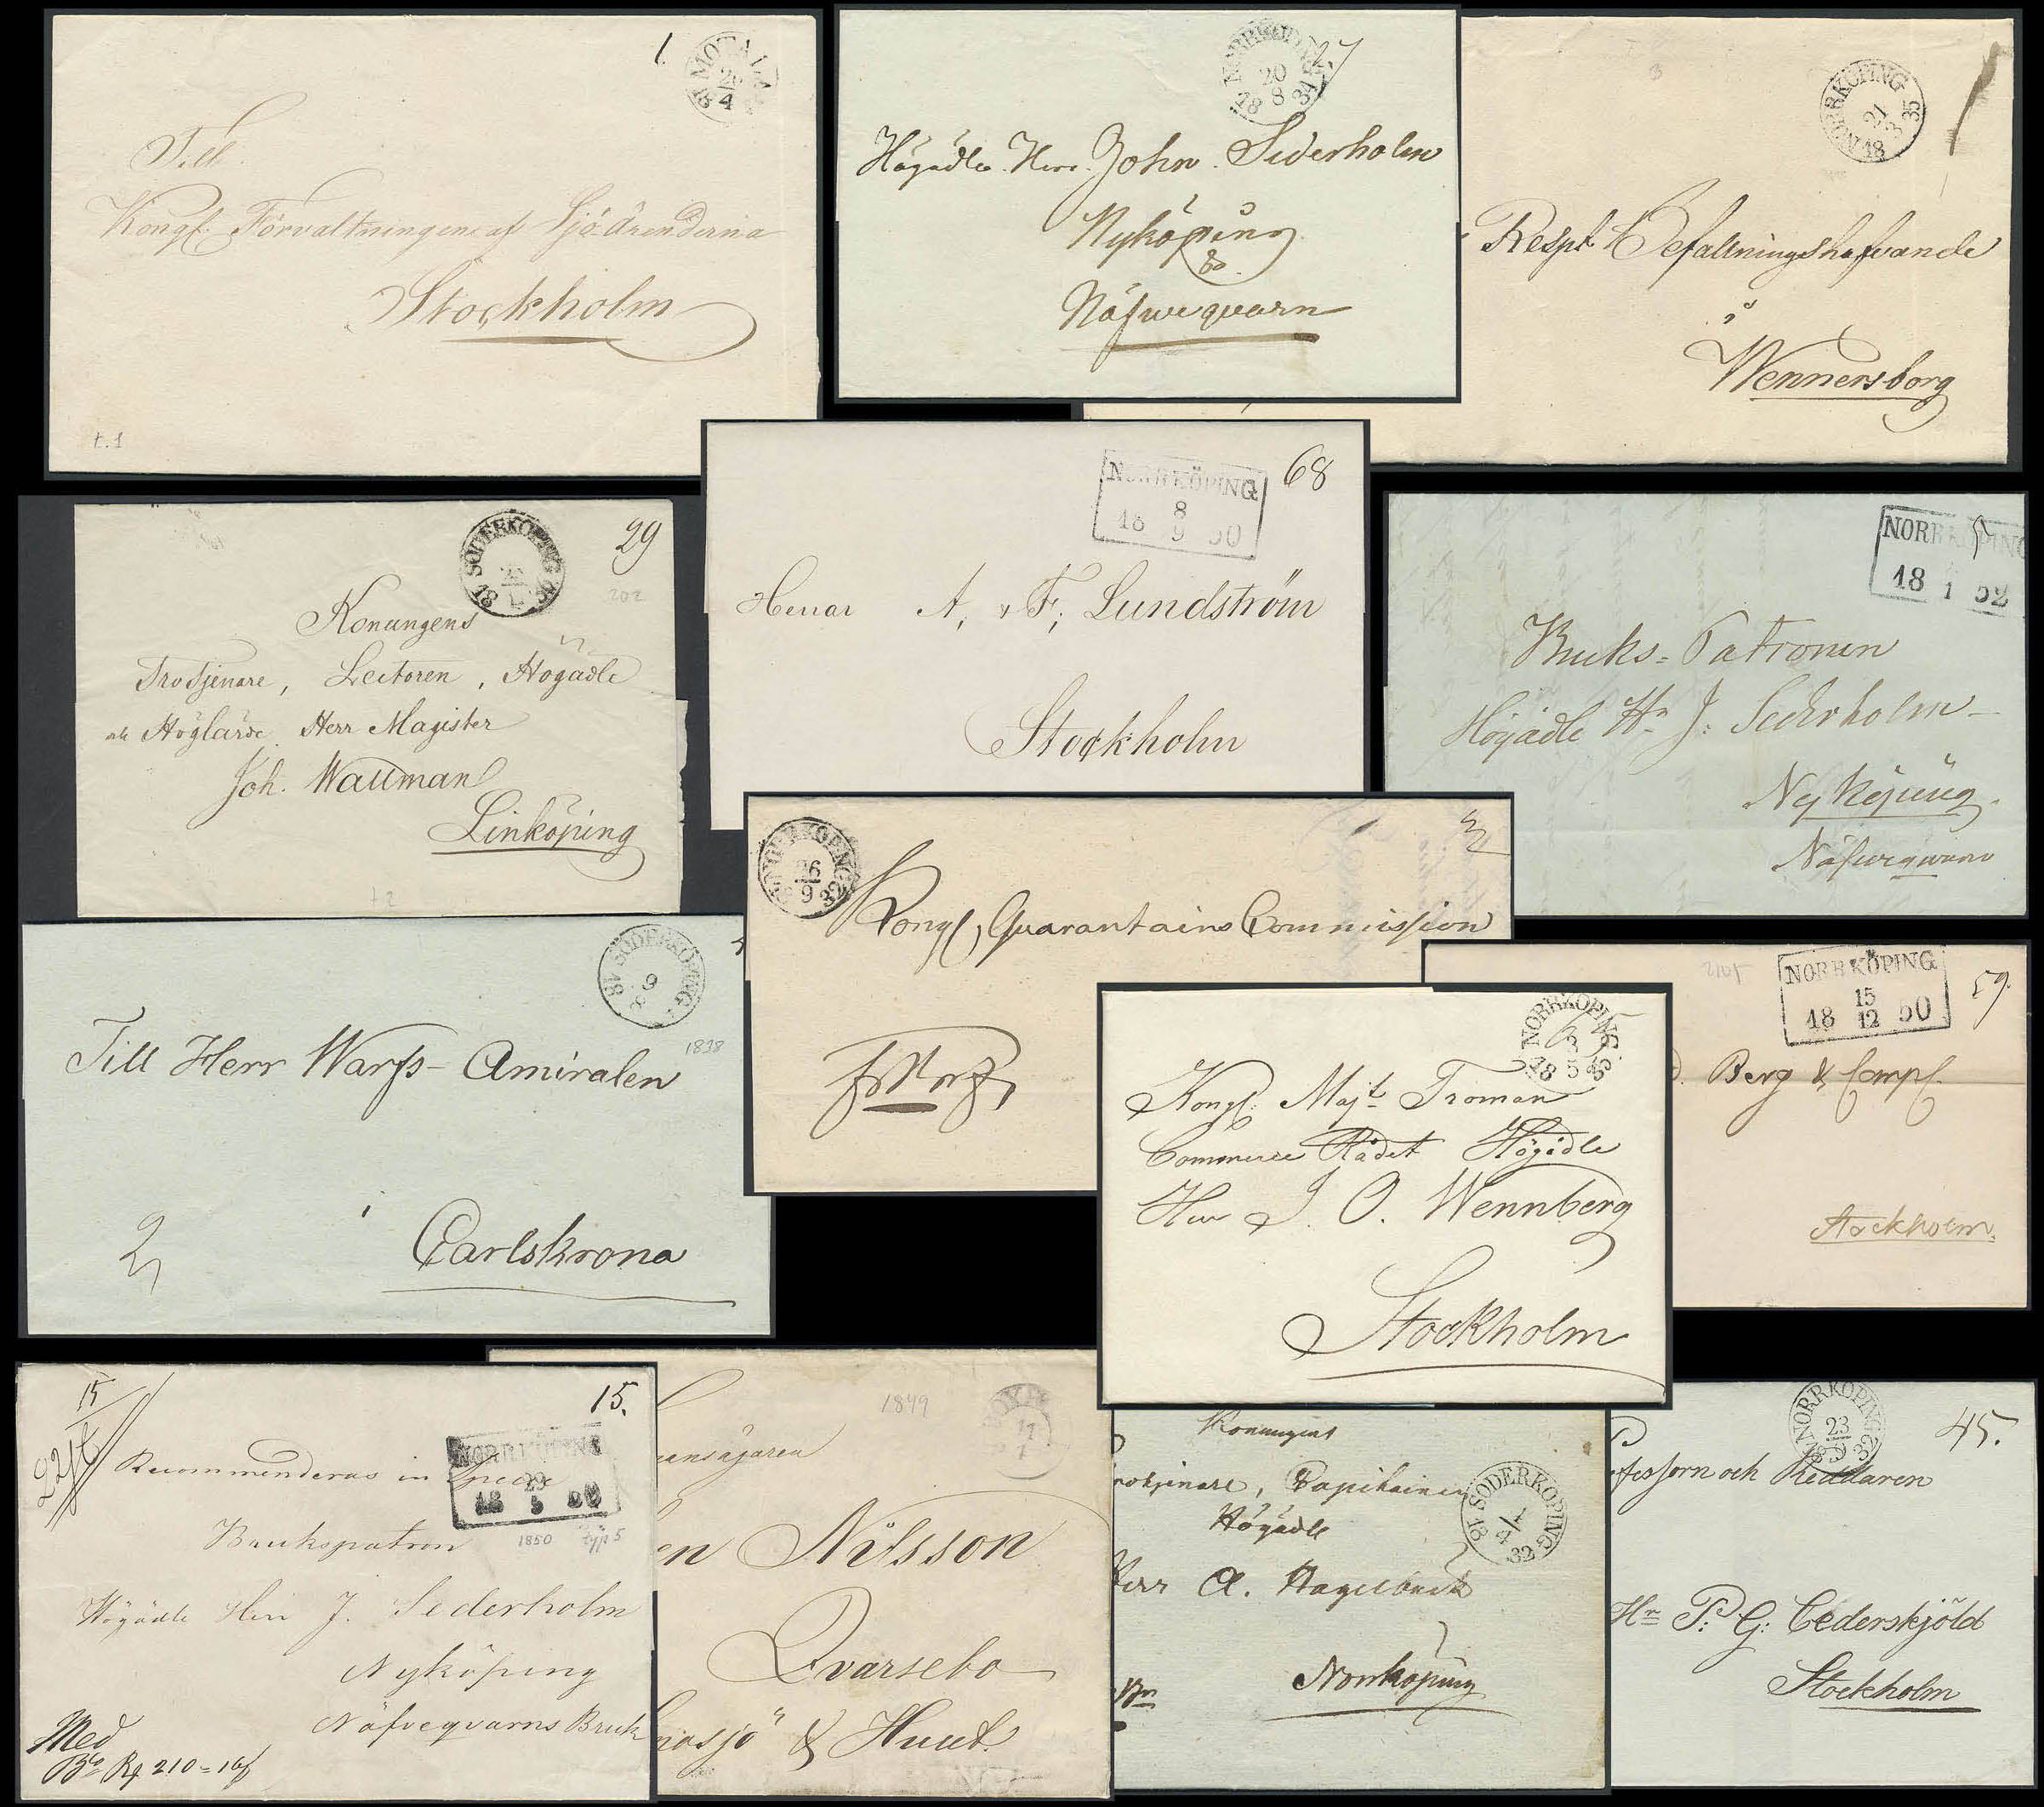 1.
MOTALA
4
Till
Kongl. Förvaltningen af Sjö-ärenderna
Stockholm
t.1
NORRKÖPING
20
18 8 34
27
Högädle Herr John Sederholm
Nyköping
&
Näfveqvarn
3
NORRKÖPING
21
18 3 35
Respt Befallningshafvande
i
Wennersborg
NORRKÖPING
8
18 9 50
68
Herrar A, & F, Lundström
Stockholm
SÖDERKÖPING
18
29
202
Konungens
Trotjenare, Lectoren, Högädle
och Höglärde Herr Magister
Joh. Wallman
Linköping
t2
NORRKÖPING
18 1 52
Bruks-Patronen
Högädle Hr J: Sederholm
Nyköping
Näfveqwarn
SÖDERKÖPING
26
9 32
Kongl, Quarantains Commission
SÖDERKÖPING
18
9
8
1838
Till Herr Warfs-Amiralen
i Carlskrona
NORRKÖPING
15
18 12 50
59.
Berg & Comp.
Stockholm.
NORRKÖPING
3
18 5 35
Kongl. Majts Troman
Commerce Rådet Högädle
Herr J. O. Wennberg
Stockholm
15
15.
NORRKÖPING
29
18 5 50
Recommenderas in Specie
1850 typ 5
Brukspatron
Högädle Herr J. Sederholm
Nyköping
Näfveqvarns Bruk
Med
Bco Rd 210 = 16
1849
Nilsson
Qvarsebo
& Huut.
Konungens
Trotjenare, Capitainen
Högädle
Herr A. Hagelbeck
Norrköping
18 SÖDERKÖPING
32
NORRKÖPING
23
18 9 32
45.
Professorn och Riddaren
Hr P. G: Cederskjöld
Stockholm